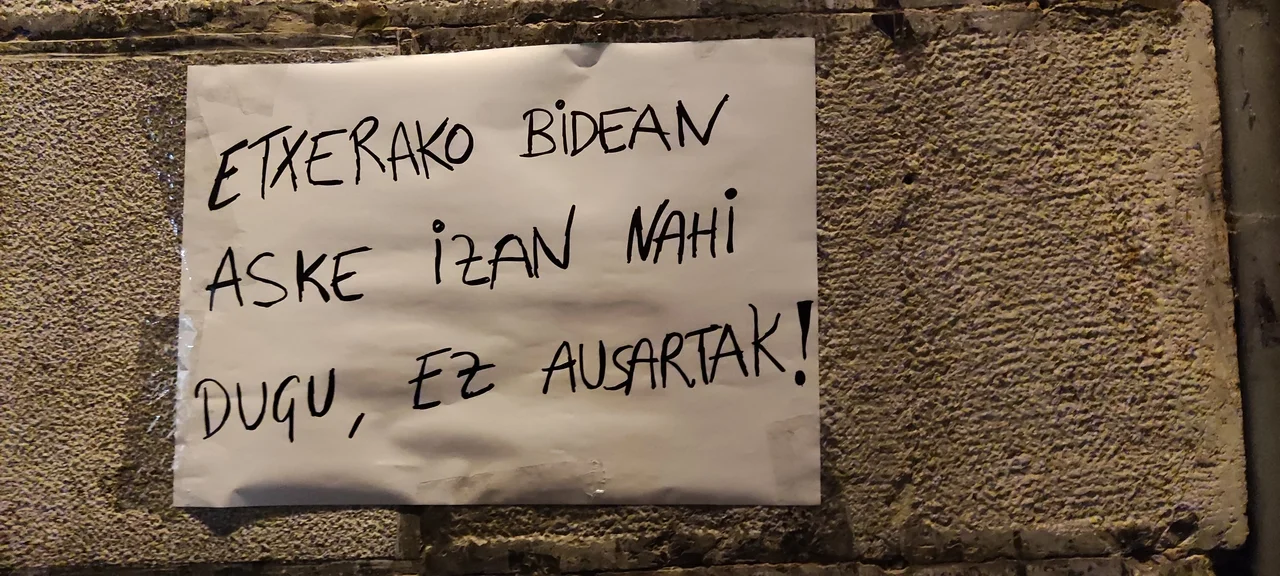 ETXERAKO BIDEAN
ASKE IZAN NAHI
DUGU, EZ AUSARTAK!